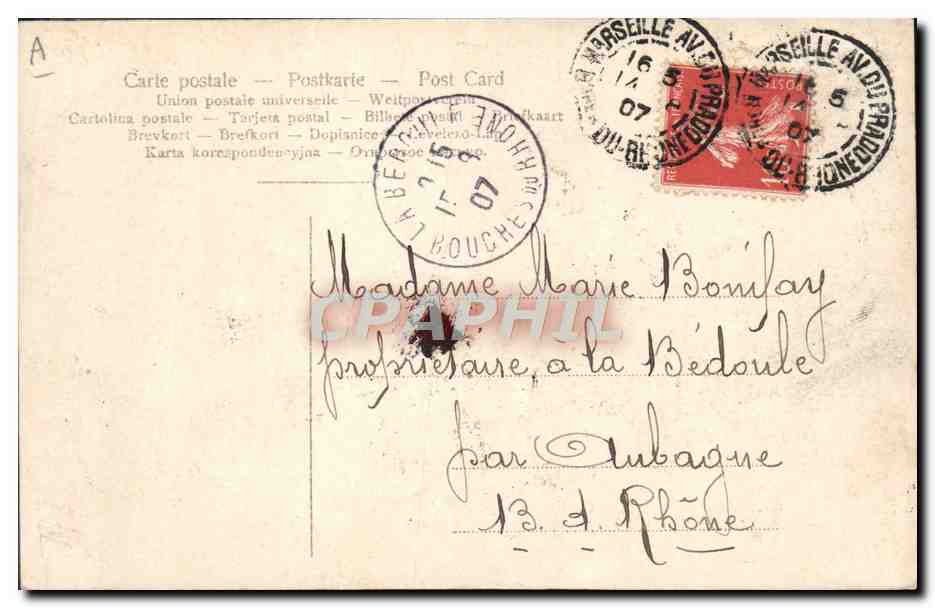 A
Carte postale — Postkarte — Post Card
Union postale universelle — Weltpostverein
Cartolina postale — Tarjeta postal — Bilhete postal — Briefkaart
Brevkort — Brefkort — Dopisnice — Levelezö-Lap
Karta korespondencyjna —
MARSEILLE AV. DU PRADO
16 5
14
07
B-DU-RHONE
MARSEILLE AV. DU PRADO
5
07
B-DU-RHONE
POSTES
LA BEDOULE
15
15 8
07
BOUCHES DU RHONE
Madame Marie Bonifay
CPAPHIL
propriétaire, a la Bédoule
par Aubagne
B. d. Rhône